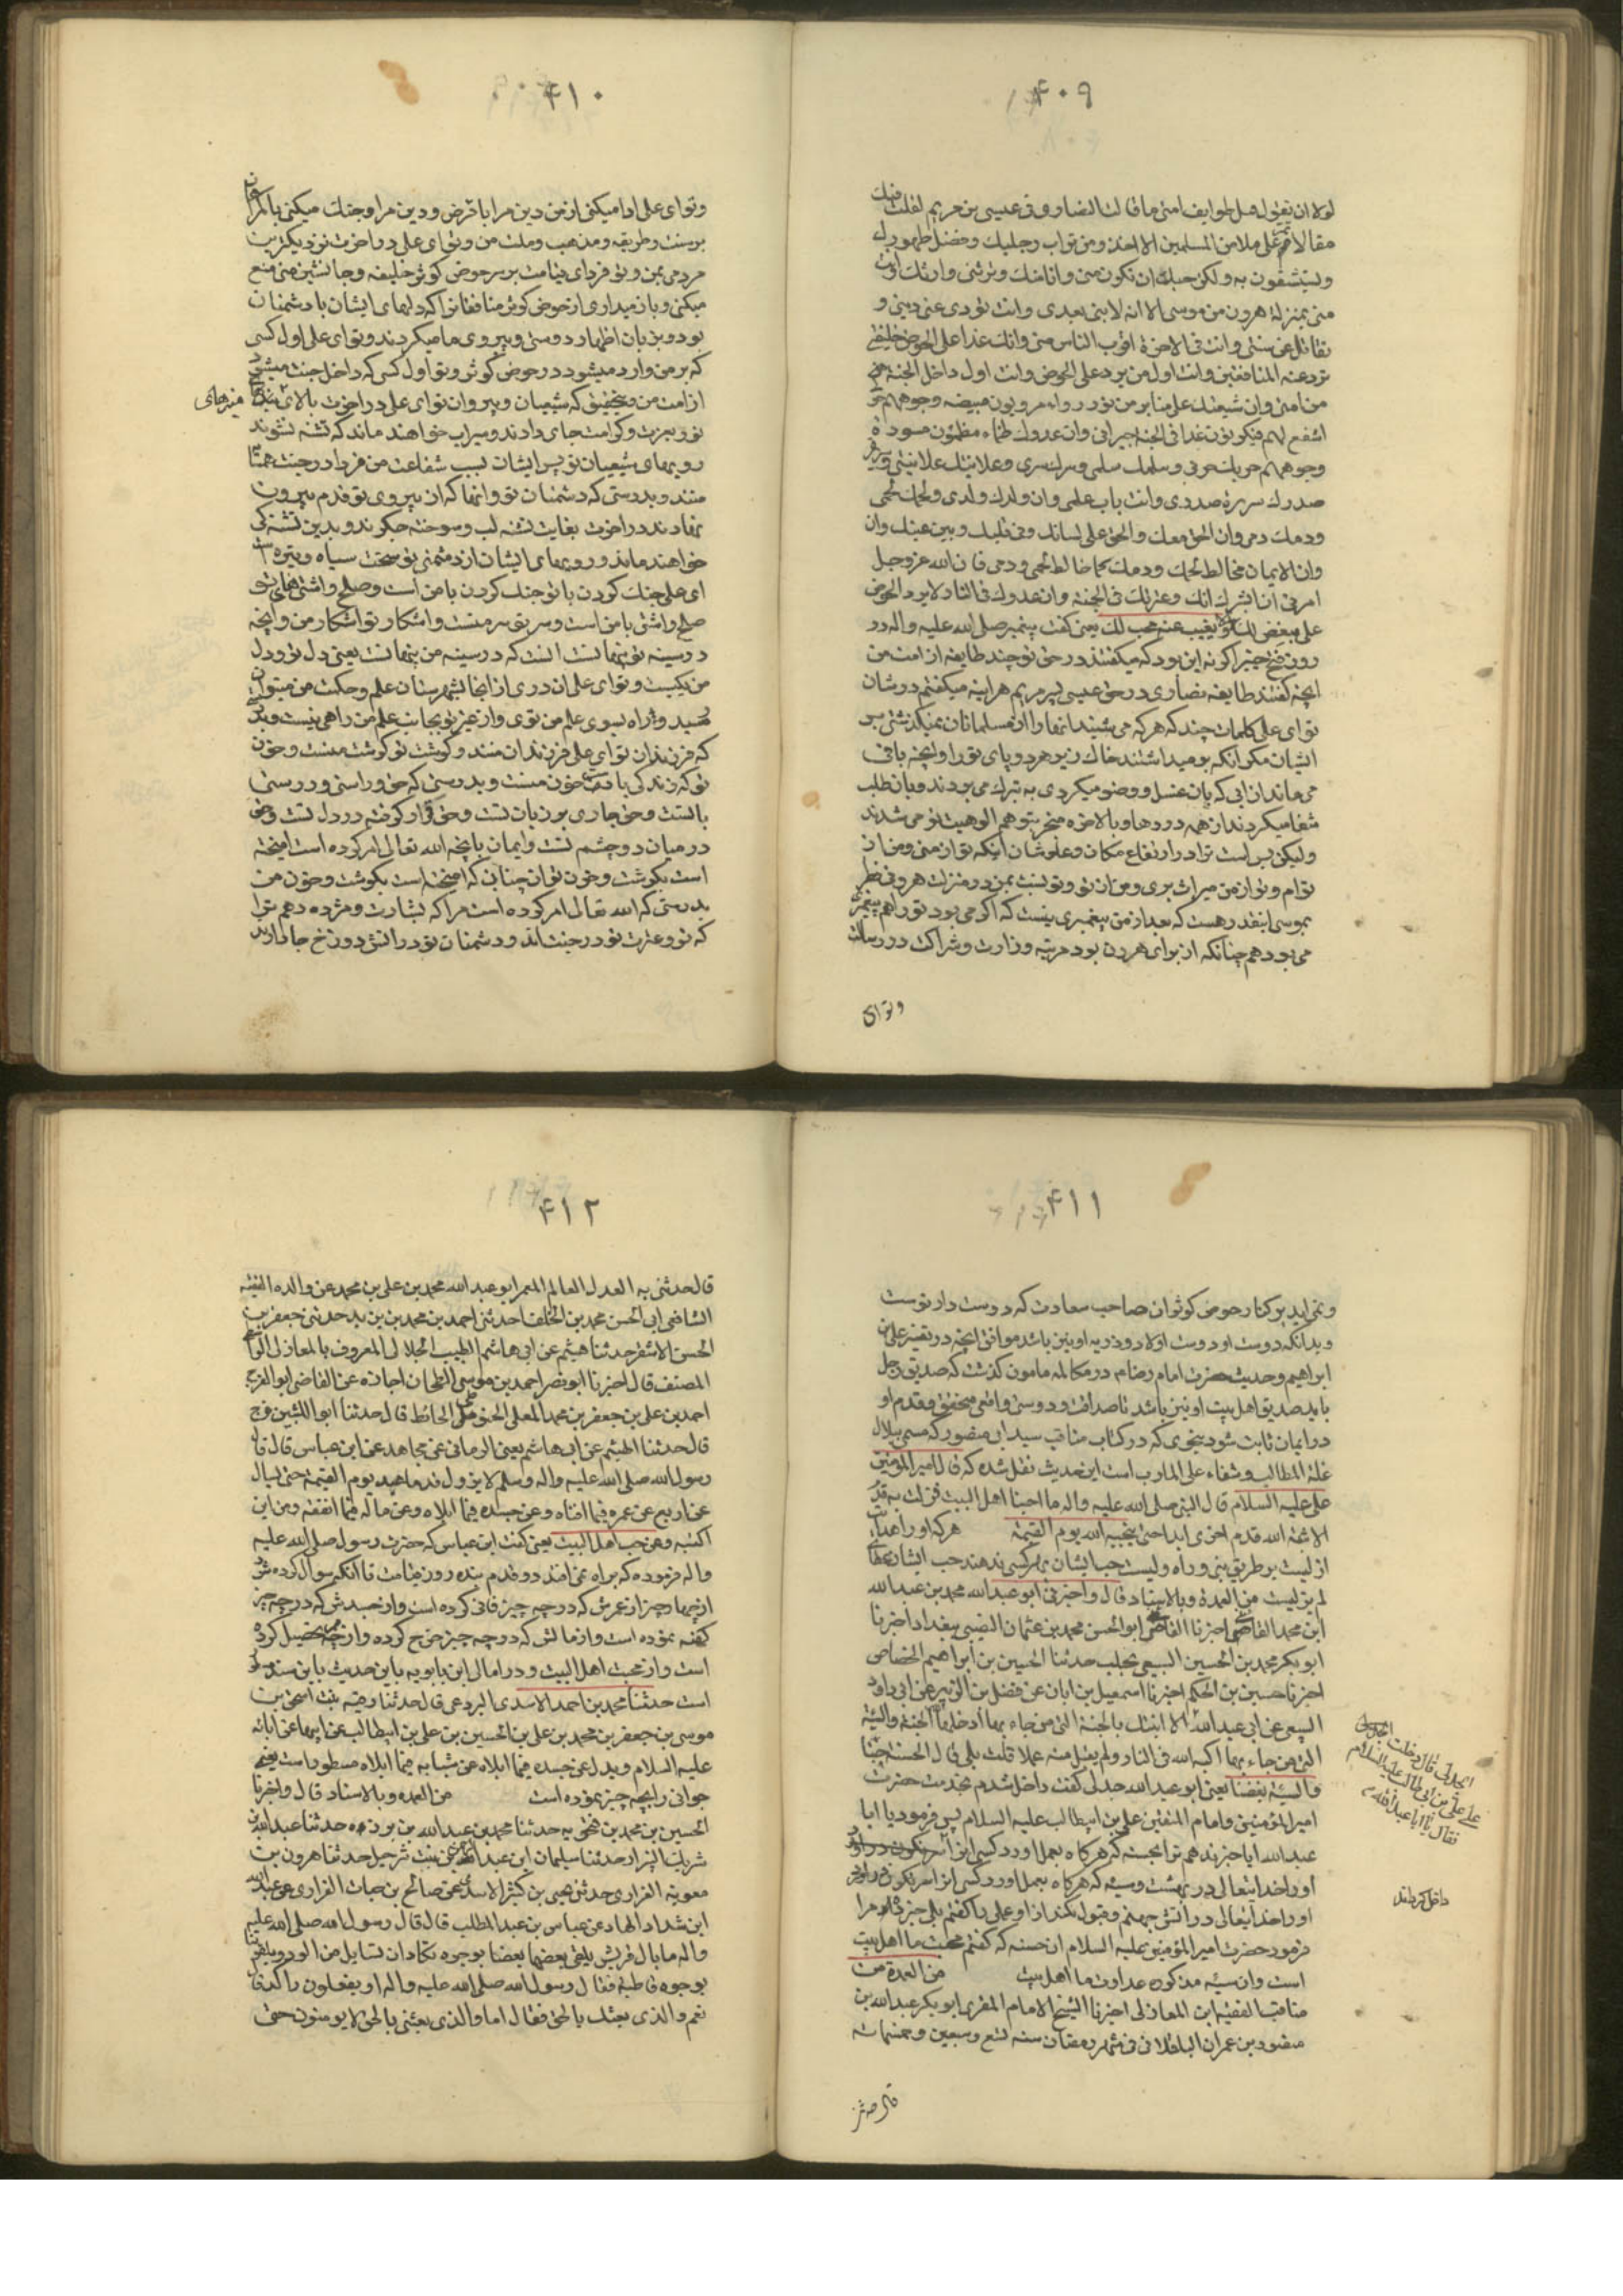 ۴۰۹
لولا ان یقول فیک طوایف امتی ما قالت النصاری فی عیسی بن مریم لقلت فیک
مقالا لا تمر علی ملا من المسلمین الا اخذوا من تراب رجلیک وفضل طهورک
ولیتشفون به ولکن حسبک ان تکون منی وانا منک وترثنی وارثک انت
منی بمنزلة هرون من موسی الا انه لا نبی بعدی وانت تؤدی عنی دینی و
تقاتل عن سنتی وانت فی الاخرة اقرب الناس منی وانک غدا علی الحوض خلیفتی
تزد عنه المنافقین وانت اول من یرد علی الحوض وانت اول داخل الجنة
من امتی وان شیعتک علی منابر من نور رواء مرویون مبیضه وجوههم
اشفع لهم فیکونون غدا فی الجنة جیرانی وان عدوک ظماء مظمئون مسودة
وجوههم حربک حربی وسلمک سلمی وسرک سری وعلانیتک علانیتی وسریره
صدرک سریرة صدری وانت باب علمی وان ولدک ولدی ولحمک لحمی
ودمک دمی وان الحق معک والحق علی لسانک وفی قلبک وبین عینک وان
وان الایمان مخالط لحمک ودمک کما خالط لحمی ودمی فان الله عز وجل
امرنی ان ابشرک انک وعترتک فی الجنة وان عدوک فی النار لا یرد الحوض
علی مبغض لک ولا یغیب عنه محب لک یعنی گفت پیغمبر صلی الله علیه واله در
روز فتح خیبر اگر نه این بود که میگفتند در حق تو چند طایفه از امت من
انچه گفتند طایفه نصاری در حق عیسی پسر مریم هراینه میگفتم در شان
تو ای علی کلمات چند که هرکه می شنید انها را از مسلمانان نمیگذشتی بر
ایشان مگر انکه بر میداشتند خاک زیر هر دو پای تو را وانچه باقی
می ماند از ابی که بان غسل و وضو میکردی به تبرک می بردند وبان طلب
شفا میکردند از همه دردها وبالاخره منجر بتوهم الوهیت تو می شدند
ولیکن بس است ترا در ارتفاع مکان وعلو شان اینکه تو از منی ومن از
توام وتو از من میراث بری ومن از تو وتو نسبت بمن در منزلت هرونی نظر
بموسی اینقدر هست که بعد از من پیغمبری نیست که اگر می بود تو را هم پیغمبری
می بود هم چنانکه از برای هرون بود مرتبه وزارت وشراکت در رسالت
وتو ای
۴۱۰
وتو ای علی ادا میکنی از من دین مرا با قرض و دین مرا وجنک میکنی با کافران
بر سنت وطریقه ومذهب وملت من وتو ای علی در اخرت نزدیکترین
مردمی بمن وتو فردای قیامت بر سر حوض کوثر خلیفه وجانشین منی منع
میکنی وباز میداری از حوض کوثر منافقان را که دلهای ایشان با دشمنان
بود و بزبان اظهار دوستی وپیروی ما میکردند وتو ای علی اول کسی
که بر من وارد میشود در حوض کوثر وتو اول کسی که داخل جنت میشود
از امت من وبتحقیق که شیعیان وپیروان تو ای علی در اخرت بالای
منبرهای
نور بعزت وکرامت جای دارند وسیراب خواهند ماند که تشنه نشوند
رویهای شیعیان تو پس ایشان بسبب شفاعت من فردا در جنت همسایه
منند و بدرستی که دشمنان تو وانها که از پیروی تو قدم بیرون
نهادند در اخرت بغایت تشنه لب وسوخته جگرند وبدین تشنگی
خواهند ماند ورویهای ایشان از دشمنی تو سخت سیاه وتیره است
ای علی جنک کردن با تو جنک کردن با من است وصلح واشتی های تو
صلح واشتی با من است وسر تو سر منست واشکار تو اشکار من وانچه
در سینه تو پنهانست انست که در سینه من پنهانست یعنی دل تو ودل
من یکیست وتو ای علی ان دری از انجا بشهرستان علم وحکمت من میتوان
رسید واراه بسوی علم من توی واز غیر تو بجانب علم من راهی نیست وبدان
که فرزندان تو ای علی فرزندان منند وگوشت تو گوشت منست وخون
تو که زندگی با اوست خون منست وبدرستی که حق وراستی ودرستی
با تست وحق جاری بر زبان تست وحق قرار گرفته در دل تست وحق
در میان دو چشم تست وایمان بانچه الله تعالی امر کرده است امیخته
است بگوشت وخون تو ان چنان که امیخته است بگوشت وخون من
بدرستی که الله تعالی امر کرده است مرا که بشارت ومژده دهم ترا
که تو وعترت تو در جنت اند ودشمنان تو در اتش دوزخ جا دارند
۴۱۱
ونمی اید بر کنار حوض کوثر ان صاحب سعادت که دوست دار توست
وبدانکه دوست او دوست اولاد وذریه او نیز باشد موافق انچه در تفسیر علی بن
ابراهیم وحدیث حضرت امام رضا در مکالمه مامون گذشت که صدیق رجل
باید صدیق اهل بیت او نیز باشد تا صداقت ودوستی واقعی متحقق وقدم او
در ایمان ثابت شود بنحوی که در کتاب مناقب سید ابی منصور که مسمی ببلال
غلة المطالب وشفاء علی المارب است این حدیث نقل شده که قال امیر المؤمنین
علی علیه السلام قال النبی صلی الله علیه واله ما احبنا اهل البیت فزلت به قدم
الا ثبته الله قدم اخری ابدا حتی ینجیه الله یوم القیمة هرکه او را هدایت
ازلیست بر طریق نبی وراه ولیست حب ایشان بهر کسی ندهند حب ایشان عطای
لم یزلیست من العمدة وبالاسناد قال واخبرنی ابو عبدالله محمد بن عبدالله
ابن محمد القاضی اخبرنا القاضی ابو الحسن محمد بن عثمان النصیبی ببغداد اخبرنا
ابوبکر محمد بن الحسین السبیعی بحلب حدثنا الحسین بن ابراهیم الجصاص
اخبرنا حسین بن الحکم اخبرنا اسمعیل بن ابان عن فضل بن الزبیر عن ابی داود
السبیعی عن ابی عبدالله الا انبئک بالحسنة التی من جاء بها ادخله الله الجنة والسیئة
التی من جاء بها اکبه الله فی النار ولم یقبل منه عملا قلت بلی قال الحسنة حبنا
والسیئة بغضنا یعنی ابو عبدالله جدلی گفت داخل شدم بخدمت حضرت
امیر المؤمنین وامام المتقین علی بن ابیطالب علیه السلام پس فرمود یا ابا
عبدالله ایا خبر ندهم ترا بحسنه که هرگاه بعمل اورد کسی انرا
او را خدایتعالی در بهشت وسیئه که هرگاه بعمل اورد کسی انرا سرنگون در اورد
او را خدایتعالی در اتش جهنم وقبول نکند از او عملی را گفتم بلی خبر ده مرا
فرمود حضرت امیر المؤمنین علیه السلام ان حسنه که گفتم محبت ما اهل بیت
است وان سیئه مذکوره عداوت ما اهل بیت من العمدة من
مناقب الفقیه ابن المغازلی اخبرنا الشیخ الامام المقری ابو بکر عبدالله بن
منصور بن عمران الباقلانی فی شهر رمضان سنه تسع وسبعین وخمسمائه
الجدلی قال دخلت
علی علی بن ابی طالب علیه السلام
فقال یا ابا عبدالله
داخل گرداند
قال حدثنی
۴۱۲
قال حدثنی به العدل العالم المعمر ابو عبدالله محمد بن علی بن محمد عن والده الفقیه
الشافعی ابی الحسن محمد بن الخلف حدثنی احمد بن محمد بن یزید حدثنی جعفر بن
الحسن الاشقر حدثنا هیثم عن ابی هاشم الطیب الجلالی المعروف بالمغازلی الواسطی
المصنف قال اخبرنا ابو نصر احمد بن موسی الطحان اجازة عن القاضی ابو الفرج
احمد بن علی بن جعفر بن محمد المعلی الحنفی الحافظ قال حدثنا ابو اللیث بن فرج
قال حدثنا الهیثم عن ابی هاشم یعنی الرمانی عن مجاهد عن ابن عباس قال قال
رسول الله صلی الله علیه واله وسلم لا یزول قدما عبد یوم القیمة حتی یسال
عن اربع عن عمره فیما افناه وعن جسده فیما ابلاه وعن ماله فیما انفقه ومن این
اکتسبه وعن حب اهل البیت یعنی گفت ابن عباس که حضرت رسول صلی الله علیه
واله فرموده که براه نمی افتد دو قدم بنده روز قیامت تا انکه سوال کرده شود
از چهار چیز از عمرش که در چه چیز فانی کرده است واز جسدش که در چه چیز
کهنه نموده است واز مالش که در چه چیز خرج کرده واز چه تحصیل کرده
است واز محبت اهل البیت ودر امالی ابن بابویه باین حدیث باین سند
است حدثنا محمد بن احمد الاسدی البردعی قال حدثنا رقیه بنت اسحق بن
موسی بن جعفر بن محمد بن علی بن الحسین بن علی بن ابیطالب عن ابیها عن ابائه
علیه السلام وبدل عن جسده فیما ابلاه عن شبابه فیما ابلاه مسطور است یعنی
جوانی را بچه چیز نموده است من العمده وبالاسناد قال واخبرنا
الحسین بن محمد بن حدثنا محمد بن عبدالله بن برزه حدثنا عبید الله بن
شریک البزاز حدثنا سلیمان ابن عبدالرحمن بنت شرحبیل حدثنا هرون بن
معویة الفزاری حدثنی یحیی بن کثیر الاسدی عن صالح بن حیات الفزاری عن عبدالله
ابن شداد الهاد عن عباس بن عبدالمطلب قال قال رسول الله صلی الله علیه
واله ما بال قریش یلقی بعضها بعضا بوجوه تکاد ان تسایل من الود ویلقوننا
بوجوه قاطبة فقال رسول الله صلی الله علیه واله او یفعلون ذاک قال
نعم والذی بعثک بالحق فقال اما والذی بعثنی بالحق لا یومنون حتی